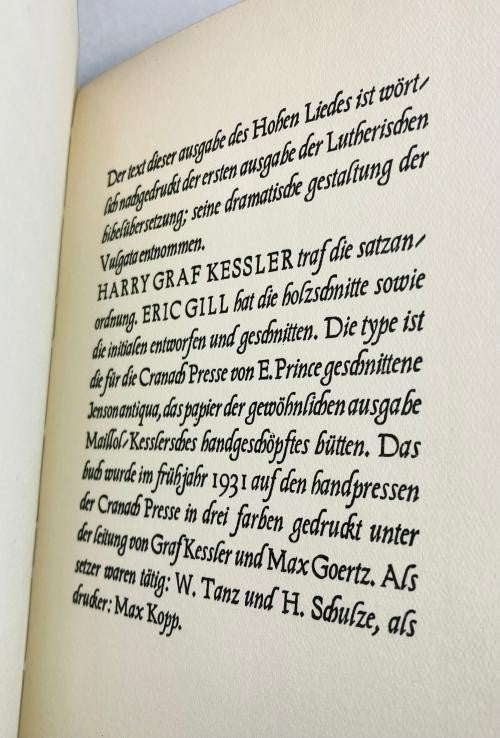 Der text dieser ausgabe des Hohen Liedes ist wört/
lich nachgedruckt der ersten ausgabe der Lutherischen
bibelübersetzung; seine dramatische gestaltung der
Vulgata entnommen.
HARRY GRAF KESSLER traf die satzan/
ordnung. ERIC GILL hat die holzschnitte sowie
die initialen entworfen und geschnitten. Die type ist
die für die Cranach Presse von E. Prince geschnittene
Jenson antiqua, das papier der gewöhnlichen ausgabe
Maillol/Kesslersches handgeschöpftes bütten. Das
buch wurde im frühjahr 1931 auf den handpressen
der Cranach Presse in drei farben gedruckt unter
der leitung von Graf Kessler und Max Goertz. Als
setzer waren tätig: W. Tanz und H. Schulze, als
drucker: Max Kopp.